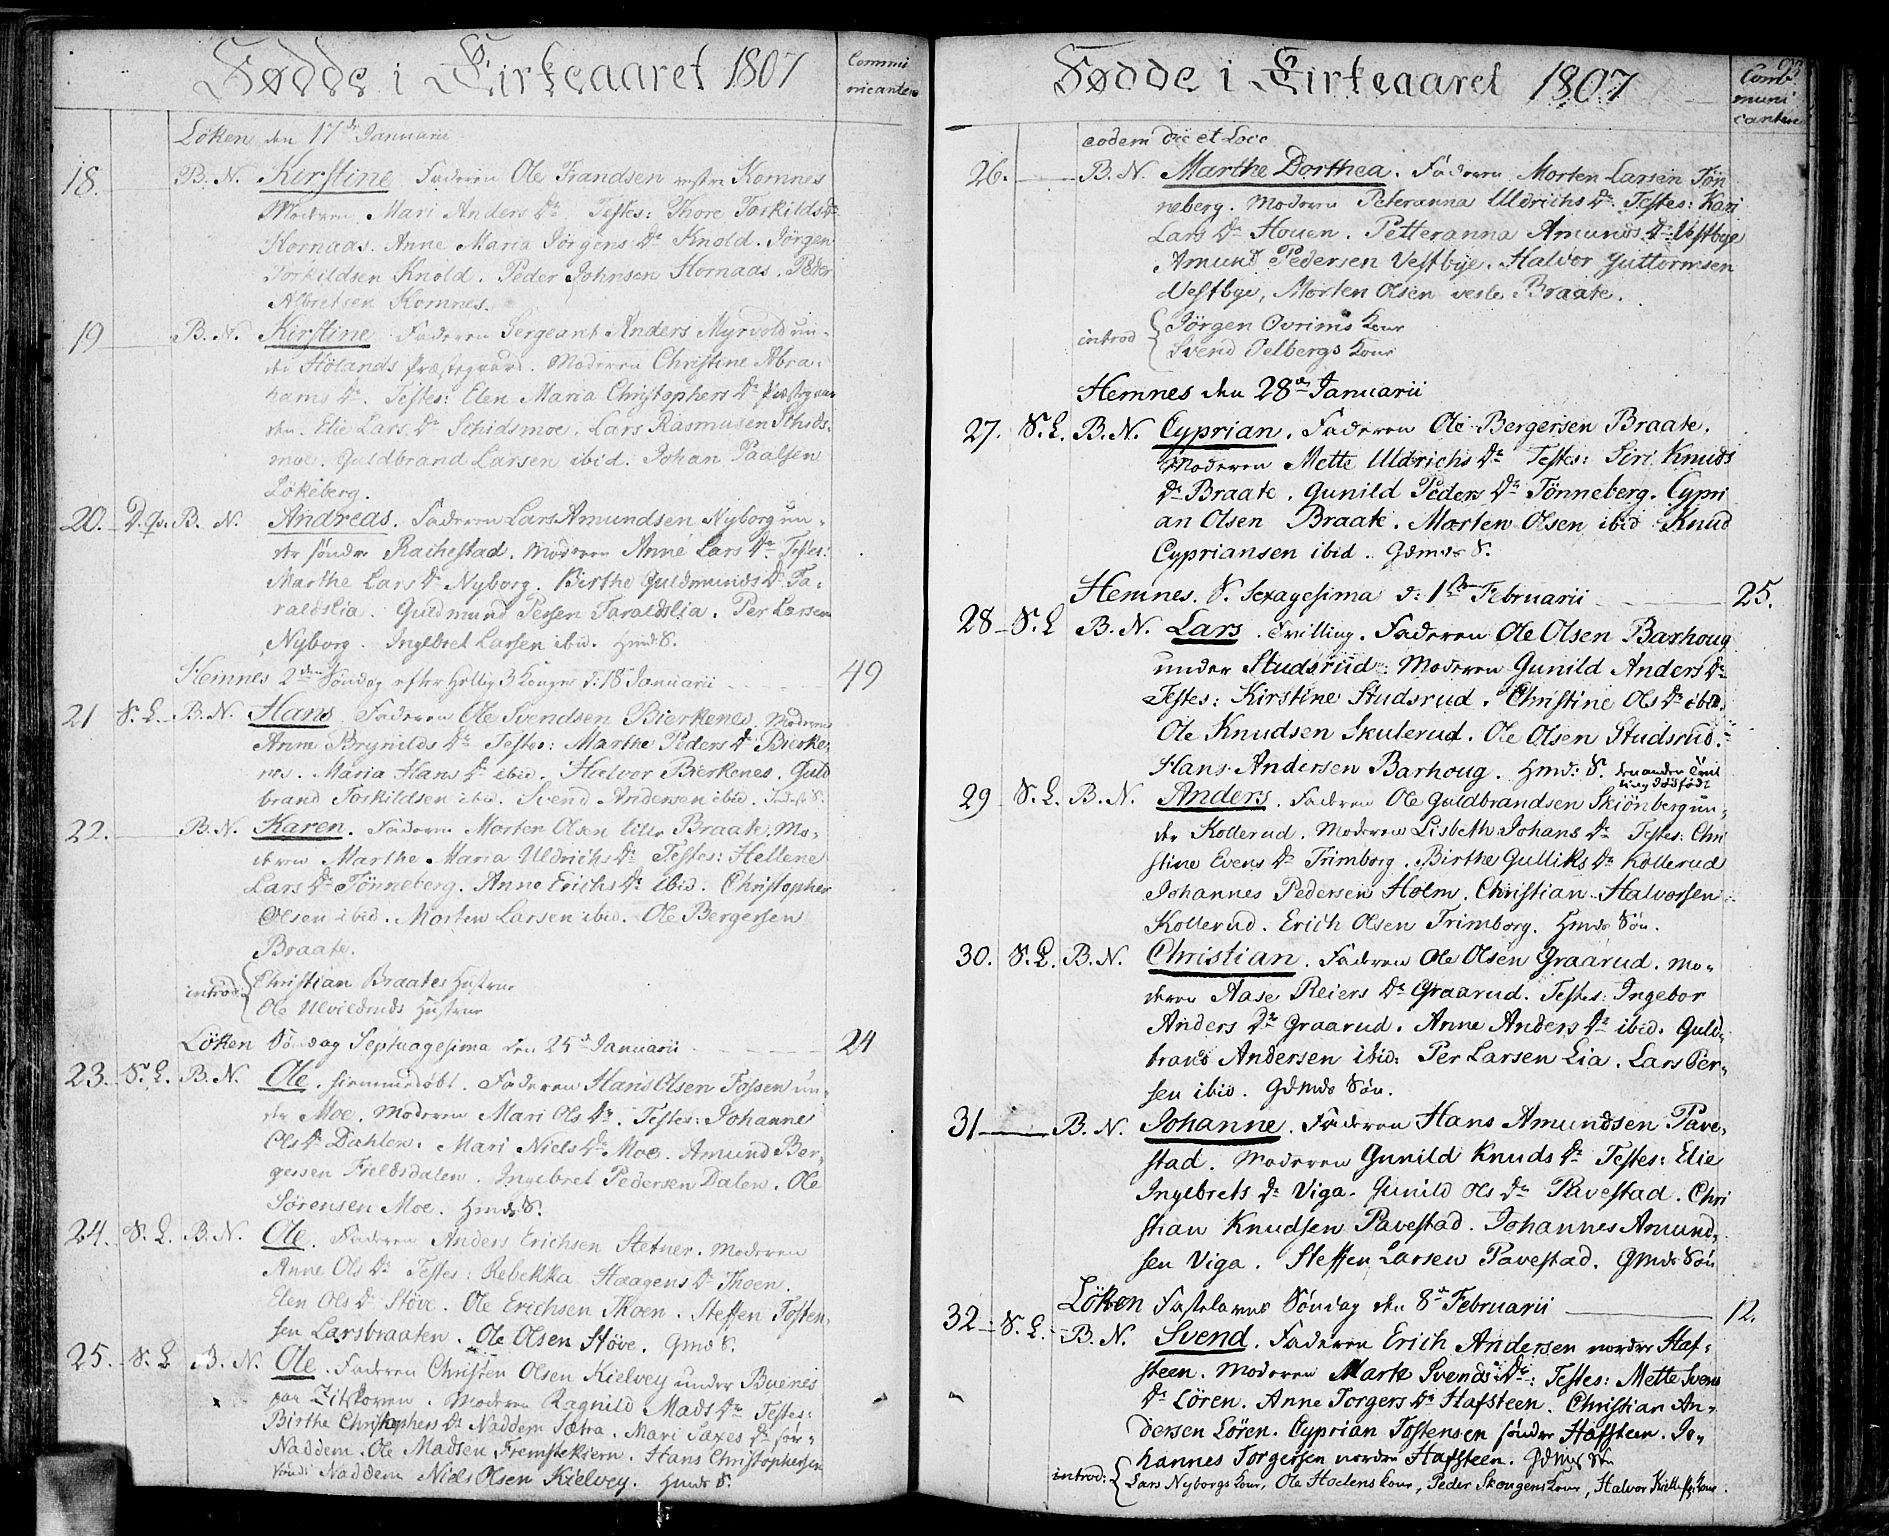 Fødde i Kirkeaaret 1807
Commu
nicantes
Löken den 17de Januarii
18. B. N. Kirstine Faderen Ole Frandsen vestre Komnes
Moderen Mari Anders Dr Testes: Thore Torkilds Dr
Hornaas. Anne Maria Jörgens Dr Knold. Jörgen
Torkildsen Knold. Peder Johnsen Hornaas. Peder
Albretsen Komnes.
19 B. N. Kirstine Faderen Sergeant Anders Myrvold un-
der Hölands Præstegaard. Moderen Christine Abra-
hams Dr. Testes: Elen Maria Christophers Dr Præstegaar
den. Elie Lars Dr Schidsmoe. Lars Rasmusen Schids-
moe. Guldbrand Larsen ibid. Johan Paalsen
Lökeberg.
20. D. qs. B. N. Andreas. Faderen Lars Amundsen Nyborg un-
der söndre Rachestad. Moderen Anne Lars Dr Testes:
Marthe Lars Dr Nyborg. Birthe Guldmunds Dr Ta-
raldslia. Guldmund Persen Taraldslia. Per Larsen
Nyborg. Ingebret Larsen ibid. Hmds S.
Hemnes 2den Söndag efter Hellig 3 Konger d: 18 Januarii 49
21 S. L. B. N. Hans Faderen Ole Svendsen Bierkenes. Moderen
Anne Brynilds Dr Testes: Marthe Peders Dr Bierke
nes. Maria Hans Dr ibid. Halvor Bierkenes. Guld
brand Torkildsen ibid. Svend Andersen ibid.
22. B. N. Karen. Faderen Morten Olsen lille Braate. Mo-
deren Marthe Maria Uldrichs Dr Testes: Hellene
Lars Dr Tönneberg. Anne Erichs Dr ibid. Christopher
Olsen ibid. Morten Larsen ibid. Ole Bergersen
Braate.
introd: Christian Braates Hustrue
Ole Ulvilsruds Hustrue
Löken Söndag Septuagesima den 25d Januarii 24
23. S. L. B. N. Ole. hiemmedöbt. Faderen Hans Olsen Fossen un-
der Moe. Moderen Mari Ols Dr. Testes: Johanne
Ols Dr Dahlen. Mari Niels Dr Moe. Amund Ber-
gersen Fieldsdalen. Ingebret Pedersen Dalen. Ole
Sörensen Moe. Hmds S.
24. S. L. B. N. Ole. Faderen Anders Erichsen Stetner. Moderen
Anne Ols Dr Testes: Rebekka Haagens Dr Thoen.
Elen Ols Dr Stöve. Ole Erichsen Thoen. Steffen Tosten-
sen Larsbraaten. Ole Olsen Stöve. Gmds S.
25. S. L. B. N. Ole. Faderen Christen Olsen Kielvey under Buenes
paa Zitskoven. Moderen Ragnild Mads Dr Testes:
Birthe Christophers Dr Naddem Sætra. Mari Saxes Dr sön-
Naddem. Ole Madsen Fremstekiern. Hans Christophersen
söndr Naddem Niels Olsen Kielvey. Hmds S.
Fødde i Kirkeaaret 1807
Com
muni
cantes
eodem die et Loco
26. B. N. Marthe Dorthea. Faderen Morten Larsen Tön
neberg. Moderen Peteranna Uldrichs Dr. Testes: Kari
Lars Dr Houen. Petteranna Amunds Dr Vestbye
Amund Pedersen Vestbye. Halvor Guttormsen
Vestbye, Morten Olsen vesle Braate.
introd Jörgen Ovrims Kone
Svend Delbergs Kone
Hemnes den 28de Januarii
27. S. L. B. N. Cyprian. Faderen Ole Bergersen Braate.
Moderen Mette Uldrichs Dr Testes: Siri Knuds
Dr Braate. Gunild Peders Dr Tönneberg. Cypri
an Olsen Braate. Morten Olsen ibid Knud
Cypriansen ibid. Gdmds S.
Hemnes. S. Sexagesima d: 1ste Februarii 25.
28 S. L B. N. Lars. Tvilling. Faderen Ole Olsen Barhoug
under Studsrud: Moderen Gunild Anders Dr
Testes: Kirstine Studsrud. Christine Ols Dr ibid.
Ole Knudsen Skulerud. Ole Olsen Studsrud.
Hans Andersen Barhoug. Hmd: S. den anden Tvil
ling dödfödt
29 S. L. B. N. Anders. Faderen Ole Guldbrandsen Skiönberg un-
der Kollerud. Moderen Lisbeth Johans Dr Testes: Chri
stine Evens Dr Trimborg. Birthe Gulliks Dr Kollerud
Johannes Pedersen Holm. Christian Halvorsen
Kollerud. Erich Olsen Trimborg. Hmds Sön.
30. S. L. B. N. Christian. Faderen Ole Olsen Graarud. Mo-
deren Aase Reiers Dr Graarud. Testes: Ingebor
Anders Dr Graarud. Anne Anders Dr ibid. Guld-
brand Andersen ibid: Per Larsen Lia. Lars Per-
sen ibid. Gdmds Sön.
31 B. N. Johanne. Faderen Hans Amundsen Pave-
stad. Moderen Gunild Knuds Dr Testes: Elie
Ingebrets Dr Viga. Gunild Ols Dr Pavestad. Chri
stian Knudsen Pavestad. Johannes Amund-
sen Viga. Steffen Larsen Pavestad. Gmds Sön
Löken Fastelavns Söndag den 8de Februarii 12.
32 S. L. B. N. Svend. Faderen Erich Andersen nordre Haf-
steen. Moderen Marte Svends Dr: Testes: Mette Svens
Dr Lören. Anne Torgers Dr Hafsteen. Christian An-
dersen Lören. Cyprian Tostensen söndre Hafsteen. Jo-
hannes Torgersen nordre Hafsteen. Gdmds Sön
introd: Lars Nyborgs Kone, Ole Hodens Kone, Peder Skougens Kone, Halvor